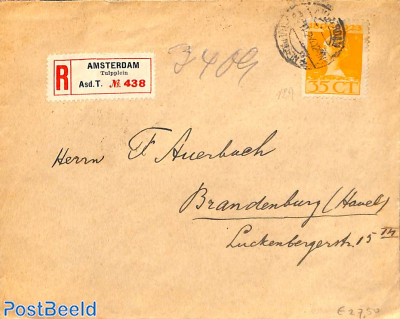 R
AMSTERDAM
Tulpplein
Asd.T. № 438
3409
35 CT
Herrn F Auerbach
Brandenburg (Havel)
Luckenbergerstr. 15 III
PostBeeld
€ 27,50